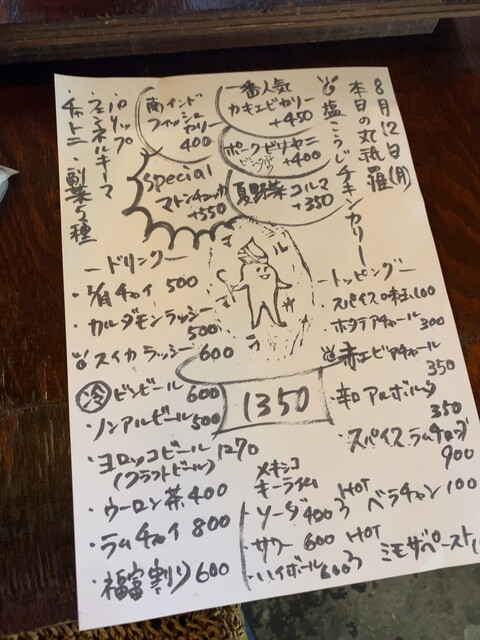 8月12日(月)
本日の丸孫羅
塩こうじチキンカリー
・パリップ
・フェンネルキーマ
・チャトニ 副菜5種
一番人気
カキエビカリー
+450
南インド
フィッシュ
カリー
400
ポークビリヤニ
+400
夏野菜コルマ
+350
Special
マトンチュッカ
+550
マハラ
1350
ードリンクー
・チャイ 500
・カルダモンラッシー
500
スイカラッシー 600
冷 ビンビール 600
・ノンアルビール
500
・ヨロッコビール 1270
(クラフトビール)
・ウーロン茶 400
・ラムチャイ 800
・福富割り 600
メキシコ
キーライム
・ソーダ 400
・サワー 600
・ハイボール 600
ートッピングー
スパイス味玉 100
ホタテアチャール 300
赤エビアチャール
350
・辛口アルボルタ
350
・スパイスラムチョップ
900
HOT ベラチャン 100
HOT ミモザペースト